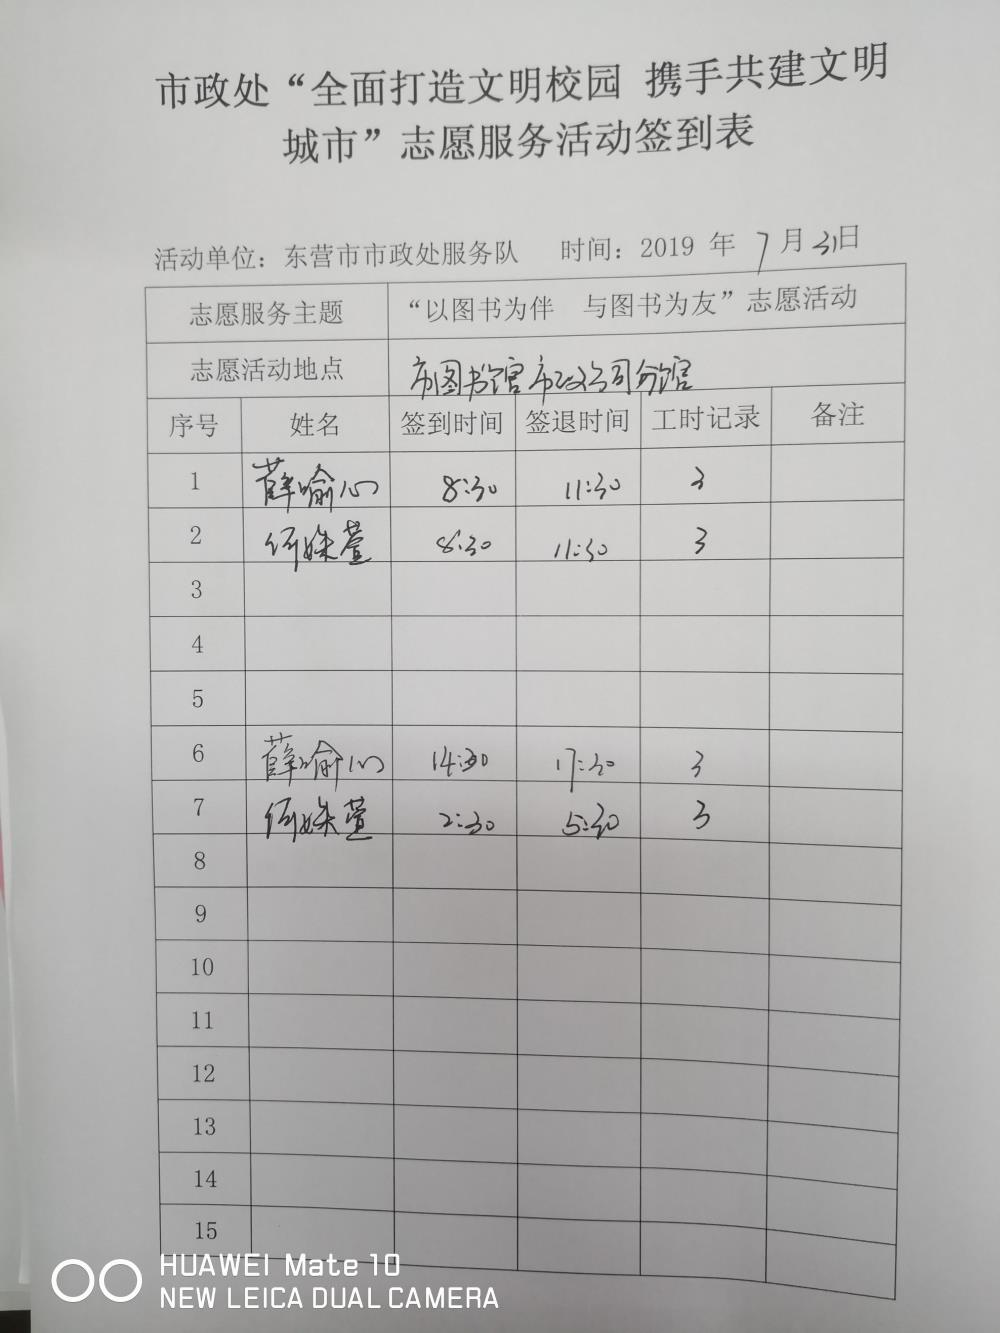 市政处“全面打造文明校园 携手共建文明
城市”志愿服务活动签到表
活动单位：东营市市政处服务队 时间：2019 年 7 月 31日
志愿服务主题 “以图书为伴 与图书为友”志愿活动
志愿活动地点 市图书馆市政公司分馆
序号 姓名 签到时间 签退时间 工时记录 备注
1 薛喻心 8:30 11:30 3
2 何姝萱 8:30 11:30 3
3
4
5
6 薛喻心 14:30 17:30 3
7 何姝萱 2:30 5:30 3
8
9
10
11
12
13
14
15
HUAWEI Mate 10
NEW LEICA DUAL CAMERA